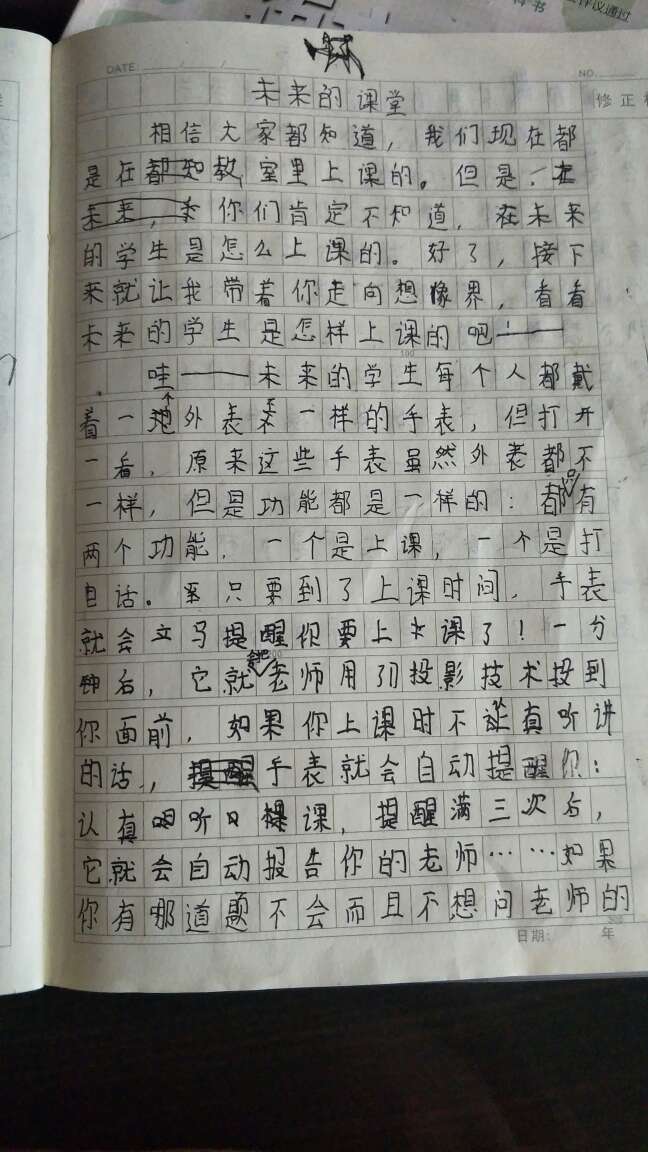 评议通过
书
DATE: / /
NO.
未来的课堂
修正
相信大家都知道，我们现在都
是在教室里上课的。但是，
你们肯定不知道，在未来
的学生是怎么上课的。好了，接下
来就让我带着你走向想像界，看看
未来的学生是怎样上课的吧！——
哇——未来的学生每个人都戴
着一 外表不一样的手表，但打开
一看，原来这些手表虽然外表都不
一样，但是功能都是一样的：都只有
两个功能，一个是上课，一个是打
电话。只要到了上课时间，手表
就会立马提醒你要上课了！一分
钟后，它就会把老师用 投影技术投到
你面前，如果你上课时不认真听讲
的话，手表就会自动提醒你：
认真听课，提醒满三次后，
它就会自动报告你的老师……如果
你有哪道题不会而且不想问老师的
100
200
300
日期： 年